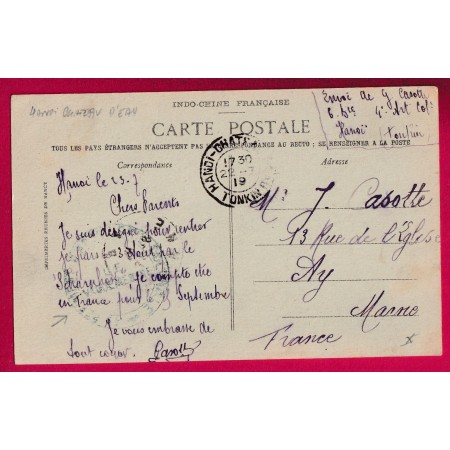 HANOI CHATEAU D'EAU
Envoi de G Casotte
6. Bie 4e Art Cole
Hanoi Tonkin
INDO-CHINE FRANÇAISE
CARTE POSTALE
TOUS LES PAYS ÉTRANGERS N'ACCEPTENT PAS LA CORRESPONDANCE AU RECTO; SE RENSEIGNER A LA POSTE
Correspondance
Adresse
HANOI-CHAT
17 30
19
TONKIN
Hanoi le 23-7
Chers Parents
Je suis désigné pour rentrer
je pars le 3 Août par le
je compte être
en France pour le Septembre
Je vous embrasse de
tout coeur. Casotte
Mr J. Casotte
13 Rue de l'Eglise
Ay
Marne
France
IMPRIMERIES RÉUNIES DE NANCY